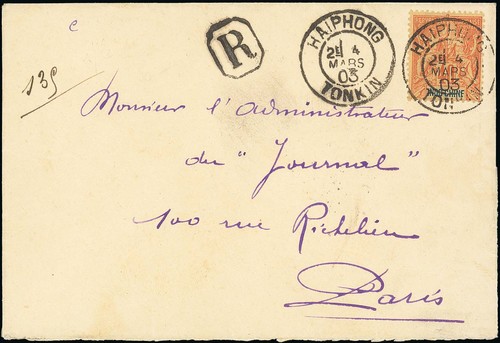 c
135
R
HAIPHONG
2E 4
MARS
03
TONKIN
HAIPHONG
2E 4
MARS
03
TONKIN
Monsieur l'Administrateur
du "Journal"
100 rue Richelieu
Paris